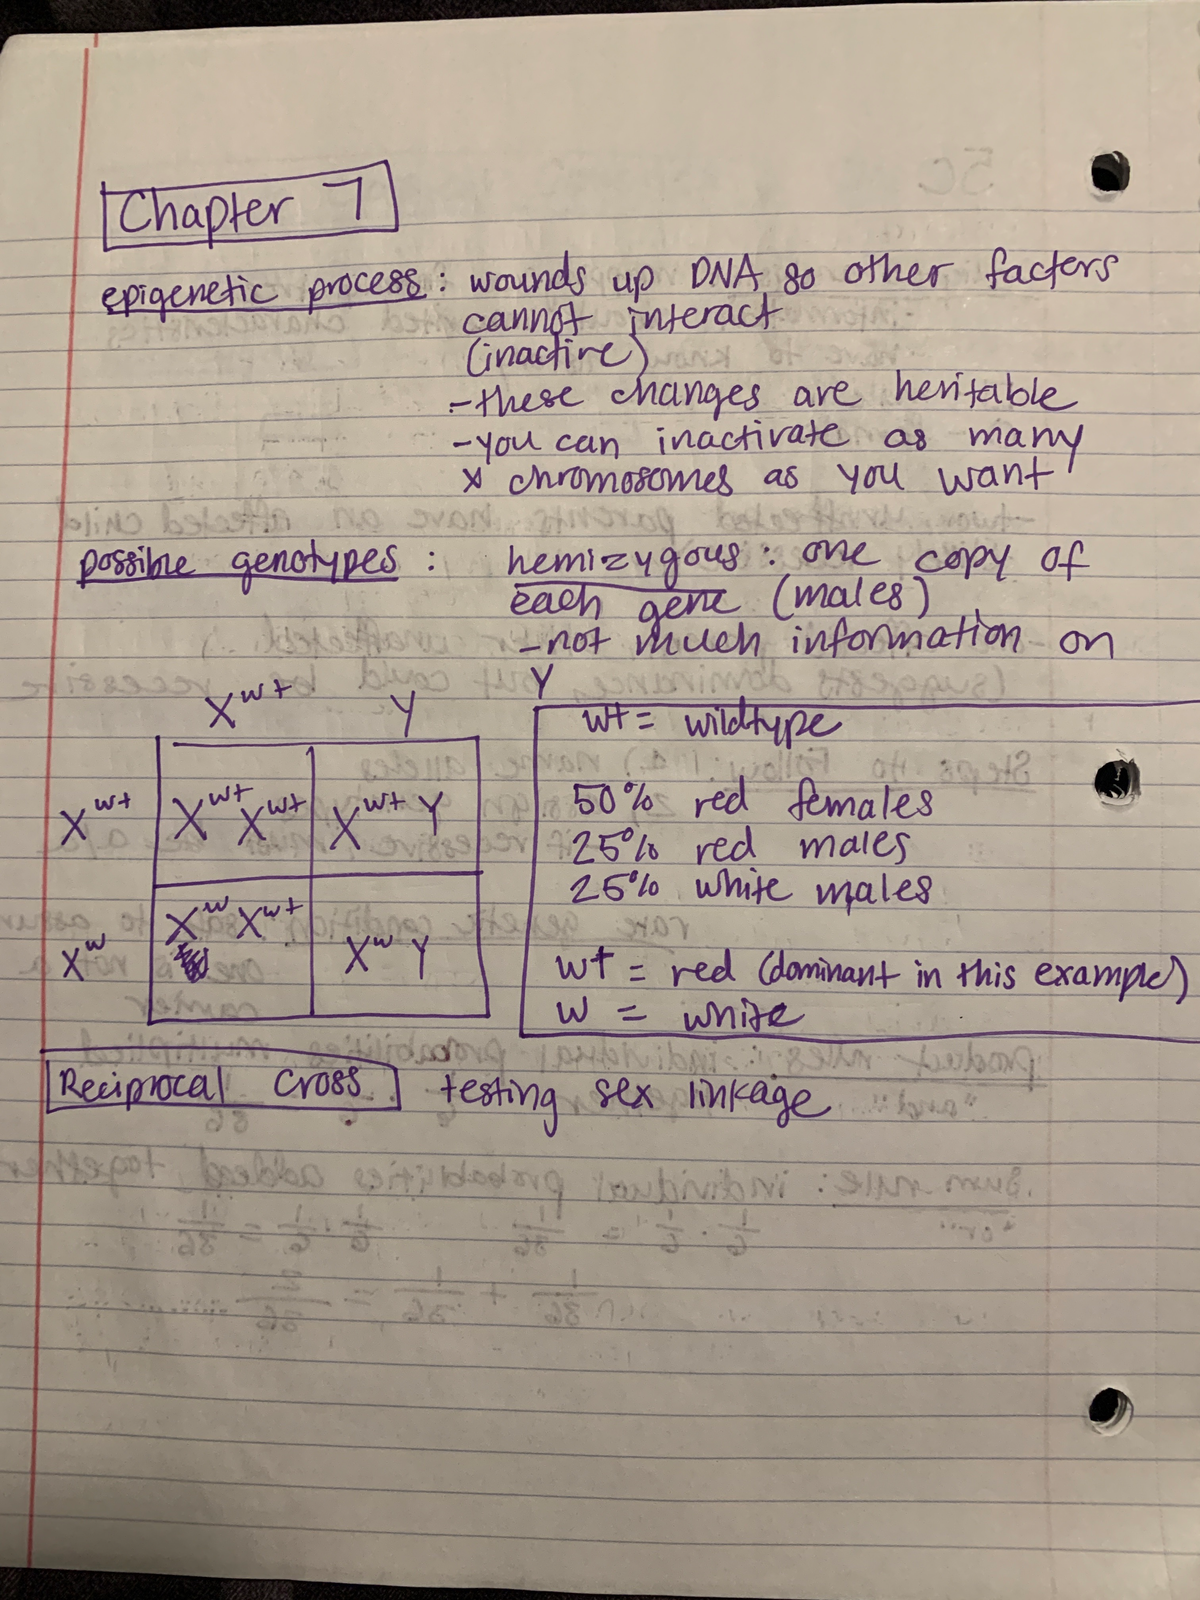 Chapter 7
epigenetic process: wounds up DNA so other factors
cannot interact
(inactive)
- these changes are heritable
- you can inactivate as many
X chromosomes as you want
possible genotypes: hemizygous: one copy of
each gene (males)
- not much information on
Y
X^wt Y
X^wt X^wt X^wt X^wt Y
X^w X^w X^wt X^w Y
wt = wildtype
50% red females
25% red males
25% white males
wt = red (dominant in this example)
w = white
Reciprocal Cross testing sex linkage